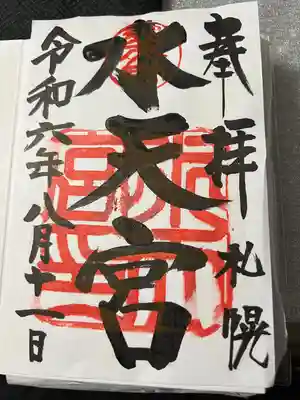 奉拝
札幌
水天宮
令和六年八月十一日